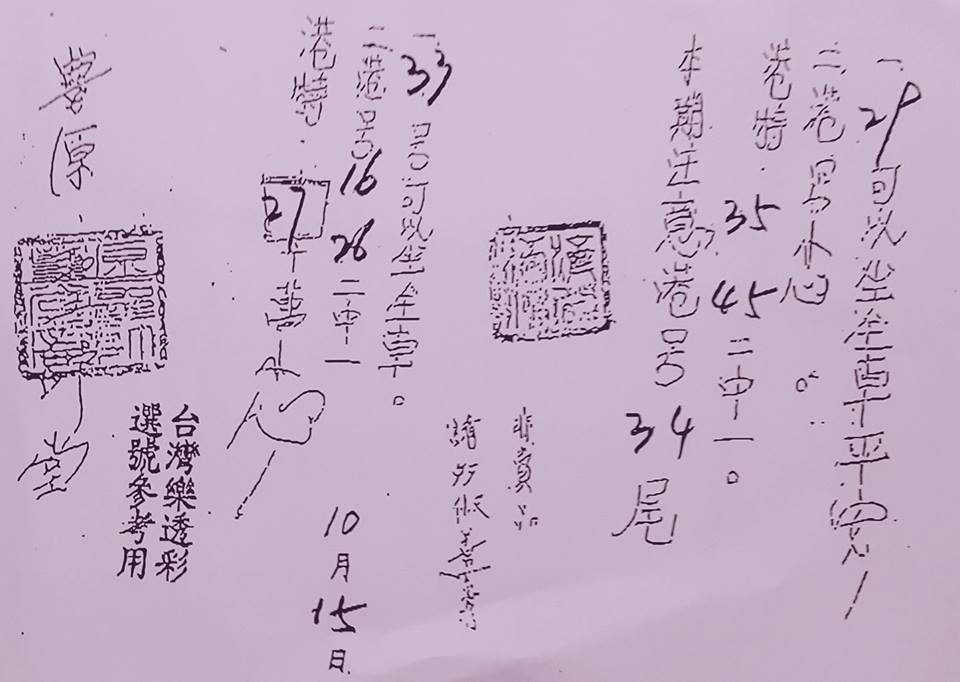 一 29 可以坐全車平安
二 港号小心。
港特.35 45 二中一。
本期注意港号 34 尾
非賣品
請多做善事
一 33 号可以坐全車。
二 港号 16 26 二中一
港特. 27 千萬小心
10月15日
台灣樂透彩
選號參考用
豐原
堂